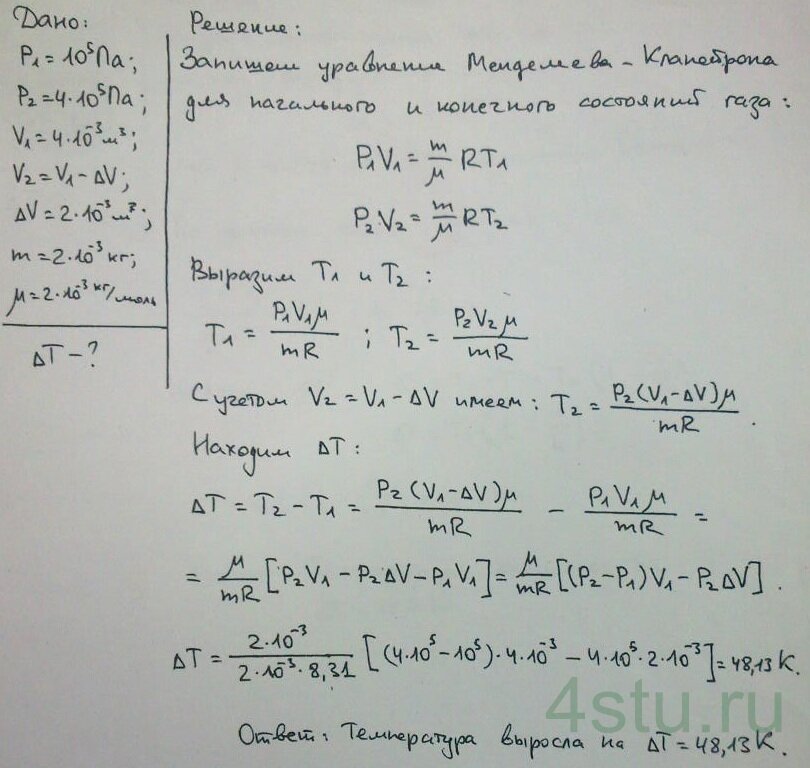 Дано:
P₁ = 10⁵ Па;
P₂ = 4·10⁵ Па;
V₁ = 4·10⁻³ м³;
V₂ = V₁ - ΔV;
ΔV = 2·10⁻³ м³;
m = 2·10⁻³ кг;
μ = 2·10⁻³ кг/моль
ΔT - ?
Решение:
Запишем уравнения Менделеева - Клапейрона
для начального и конечного состояний газа:
P₁V₁ = m/μ RT₁
P₂V₂ = m/μ RT₂
Выразим T₁ и T₂:
T₁ = P₁V₁μ/mR ; T₂ = P₂V₂μ/mR
С учетом V₂ = V₁ - ΔV имеем: T₂ = P₂(V₁-ΔV)μ/mR.
Находим ΔT:
ΔT = T₂ - T₁ = P₂(V₁-ΔV)μ/mR - P₁V₁μ/mR =
= μ/mR [P₂V₁ - P₂ΔV - P₁V₁] = μ/mR [(P₂-P₁)V₁ - P₂ΔV].
ΔT = 2·10⁻³/2·10⁻³·8,31 [(4·10⁵ - 10⁵)·4·10⁻³ - 4·10⁵·2·10⁻³] = 48,13 К.
4stu.ru
Ответ: Температура выросла на ΔT = 48,13 К.